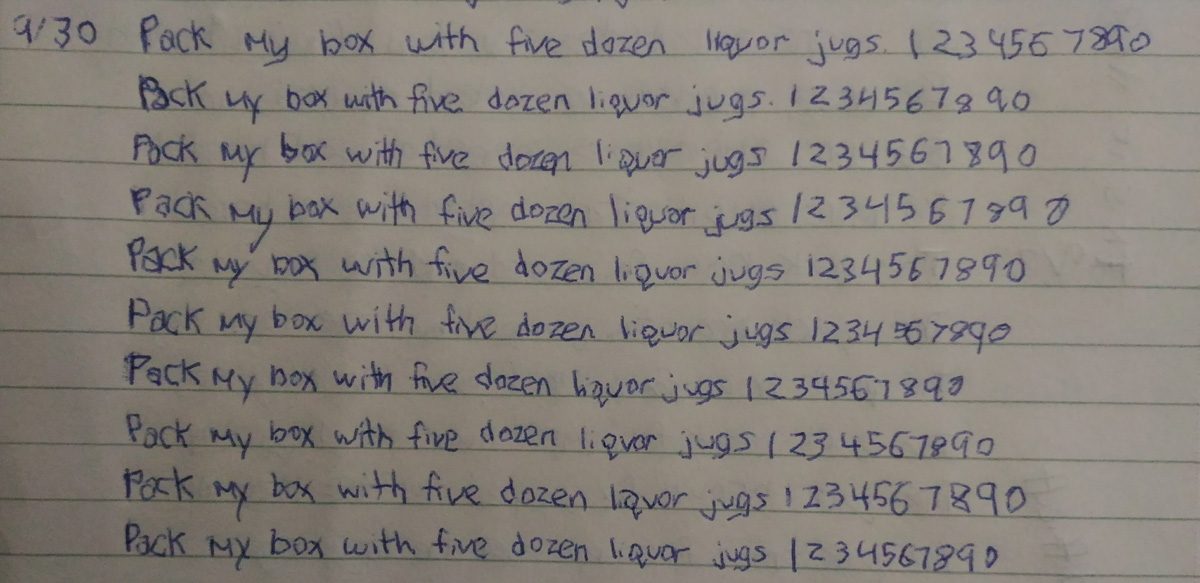 9/30 Pack my box with five dozen liquor jugs. 1234567890
Pack my box with five dozen liquor jugs. 1234567890
Pack my box with five dozen liquor jugs 1234567890
Pack my box with five dozen liquor jugs 1234567890
Pack my box with five dozen liquor jugs 1234567890
Pack my box with five dozen liquor jugs 1234567890
Pack my box with five dozen liquor jugs 1234567890
Pack my box with five dozen liquor jugs 1234567890
Pack my box with five dozen liquor jugs 1234567890
Pack my box with five dozen liquor jugs 1234567890